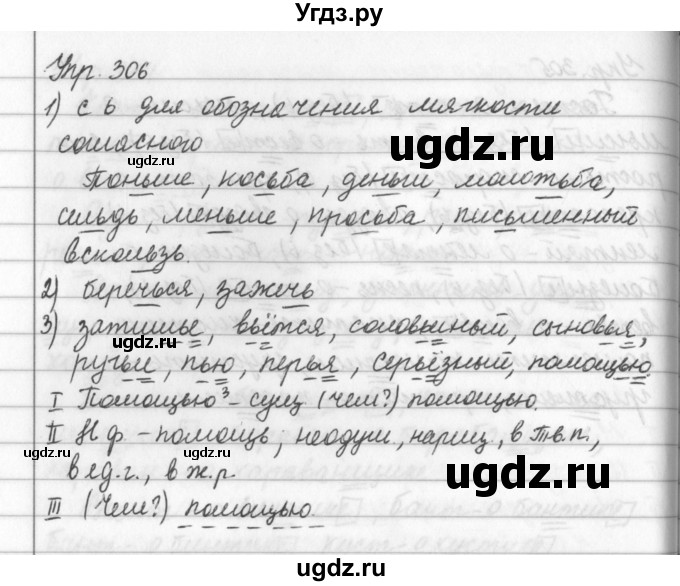 Угдз.ру
Упр. 306
1) с ь для обозначения мягкости
согласного
ugdz.ru
ugdz.ru
Тоньше, косьба, деньги, молотьба,
сельдь, меньше, просьба, письменный
вскользь.
2) беречься, зажечь
3) затишье, вьётся, соловьиный, сыновья,
ugdz.ru
ручьи, пью, перья, серьёзный, помощью.
I Помощью³ - сущ (чем?) помощью.
II Н.ф. - помощь; неодуш, нариц, в Тв.п.,
ugdz.ru
ugdz.ru
в ед.г., в ж.р.
III (Чем?) помощью.
ugdz.ru
ugdz.ru